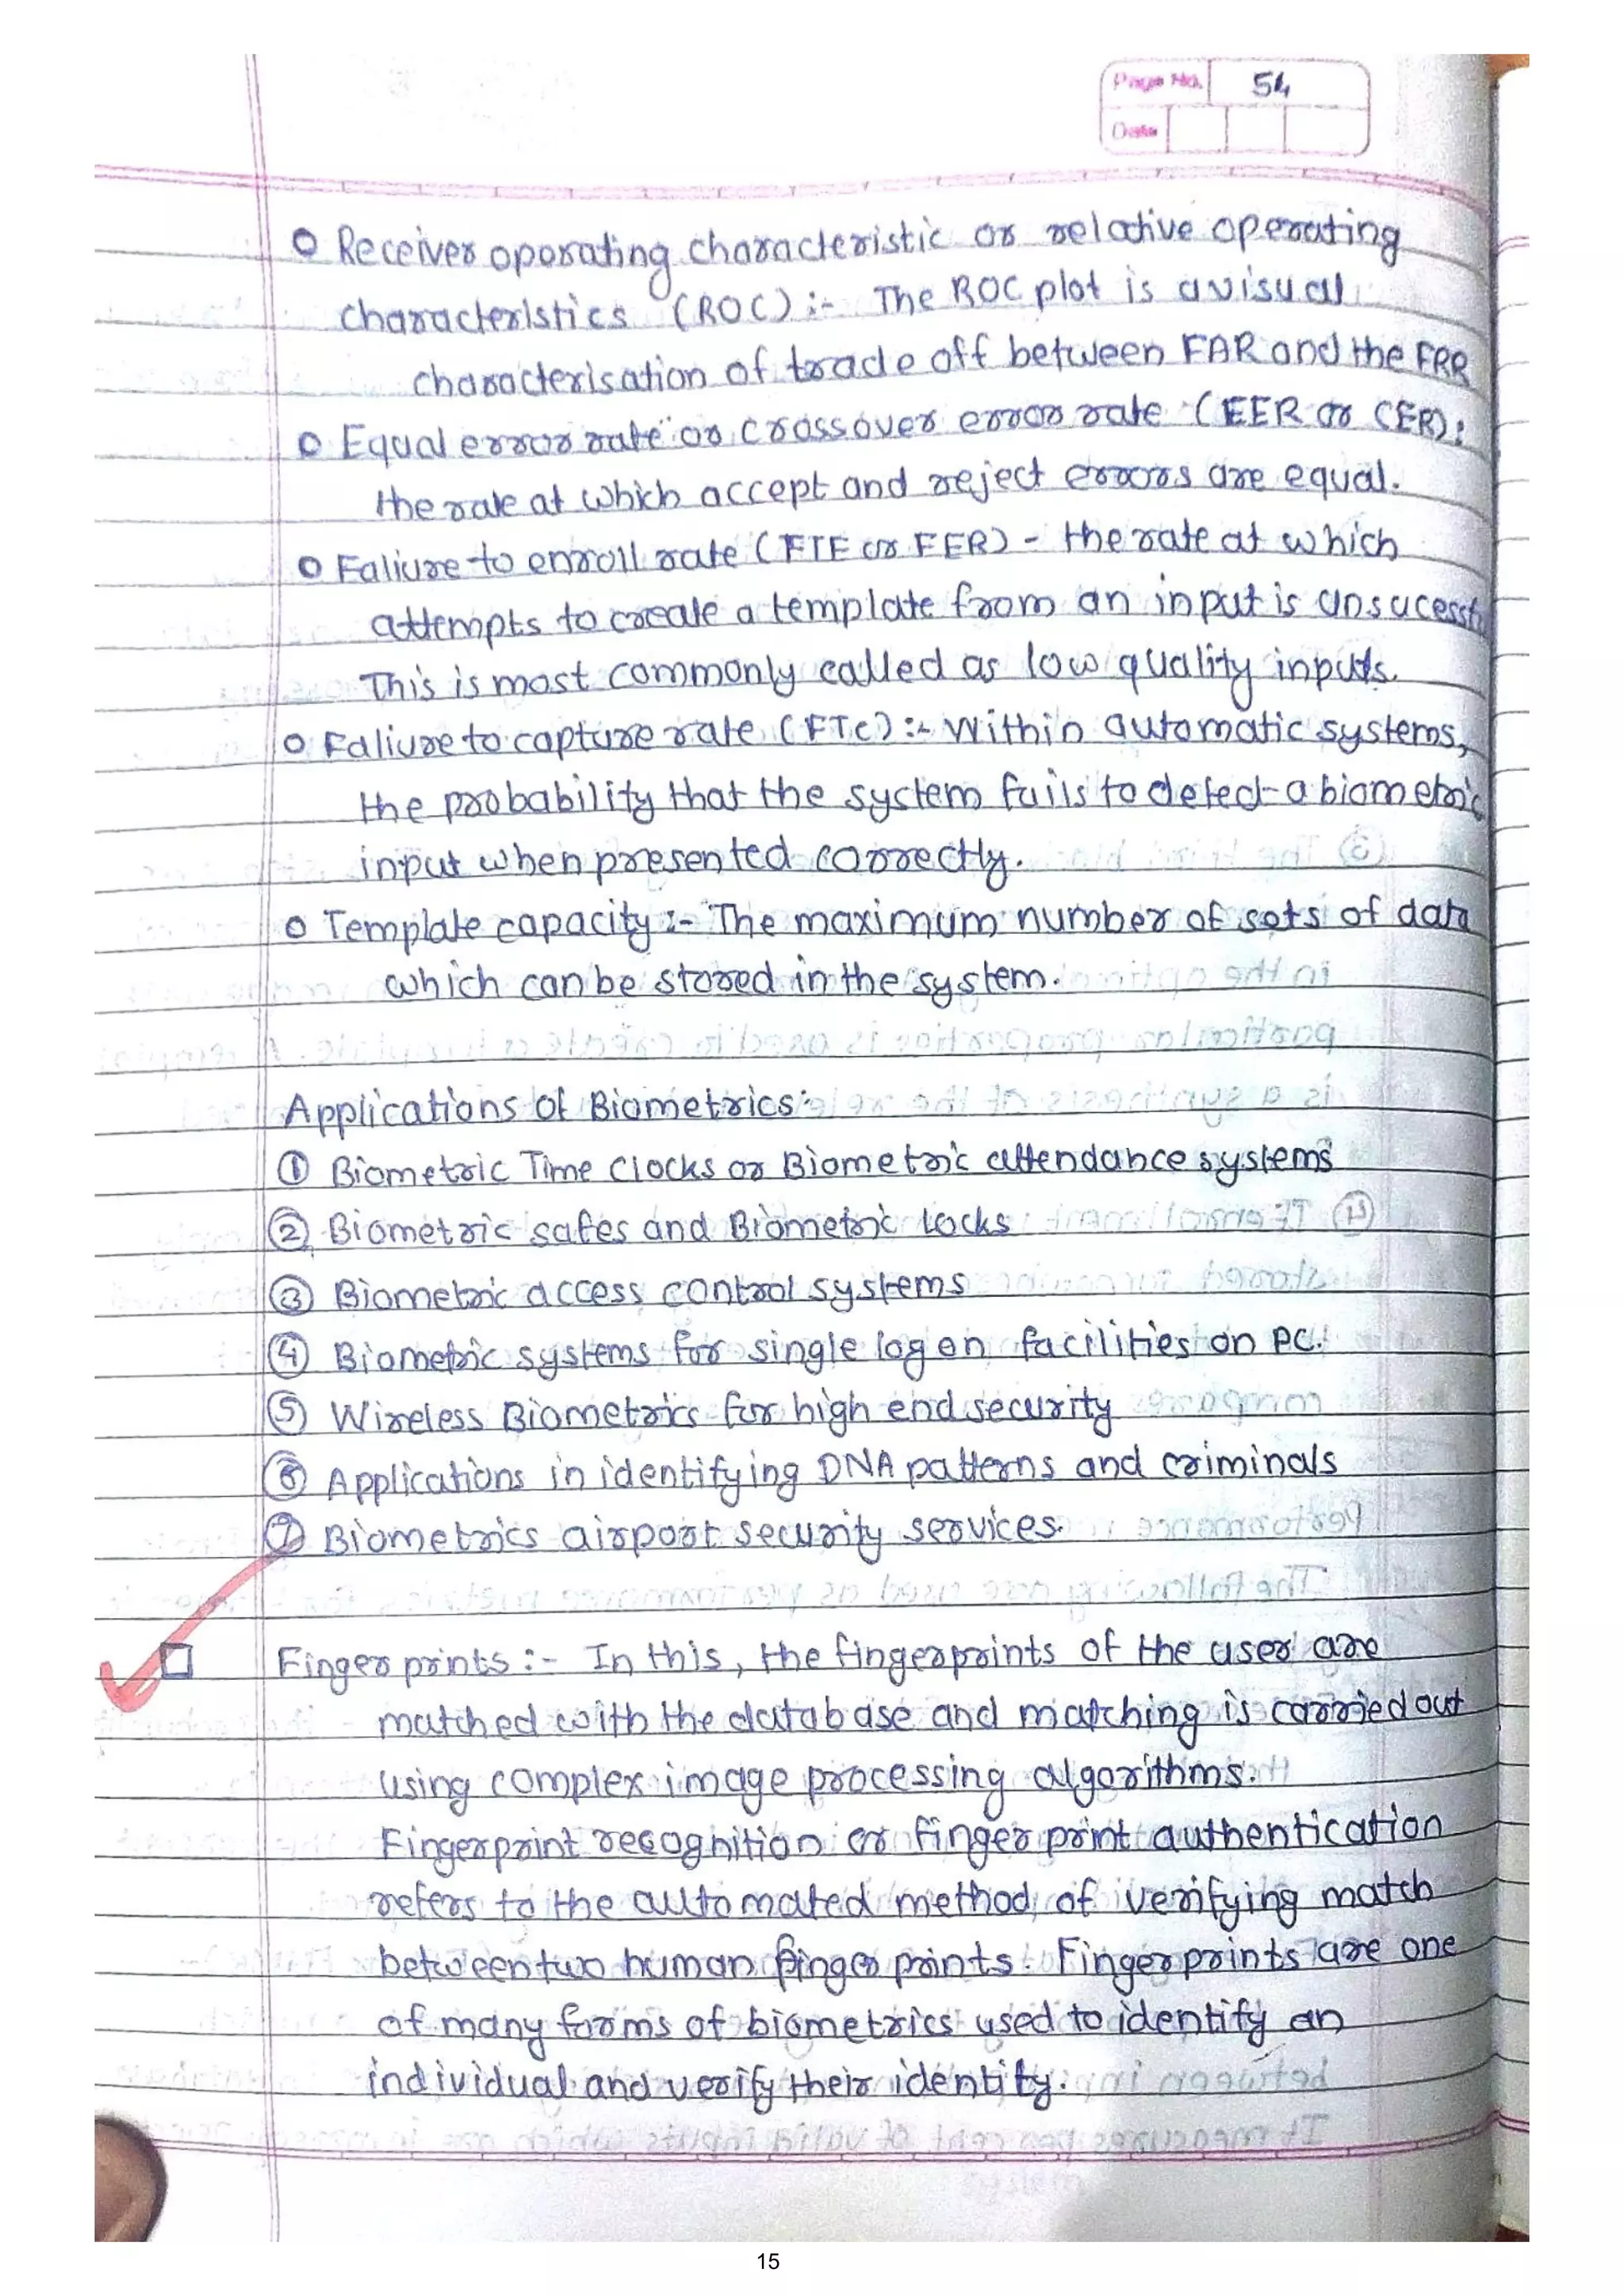 Page No. 54
Date
o Receiver operating characteristic or relative operating
characteristics (ROC) :- The ROC plot is a visual
characterisation of trade off between FAR and the FRR
o Equal error rate or crossover error rate (EER or CER):
the rate at which accept and reject errors are equal.
o Faliure to enroll rate (FTE or FER) - the rate at which
attempts to create a template from an input is
This is most commonly called as low quality inputs.
o Faliure to capture rate (FTC) :- Within automatic systems,
the probability that the system fails to detect a biometric
input when presented correctly.
o Template capacity :- The maximum number of sets of data
which can be stored in the system.
Applications of Biometrics:-
① Biometric Time clocks or Biometric attendance systems
② Biometric safes and Biometric locks
③ Biometric access control systems
④ Biometric systems for single log on facilities on PC.
⑤ Wireless Biometrics for high end security
⑥ Applications in identifying DNA patterns and criminals
⑦ Biometrics airport security services.
Finger prints :- In this, the fingerprints of the user are
matched with the database and matching is carried out
using complex image processing algorithms.
Fingerprint recognition or finger print authentication
refers to the automated method of verifying match
between two human finger prints. Finger prints are one
of many forms of biometrics used to identify an
individual and verify their identity.
15